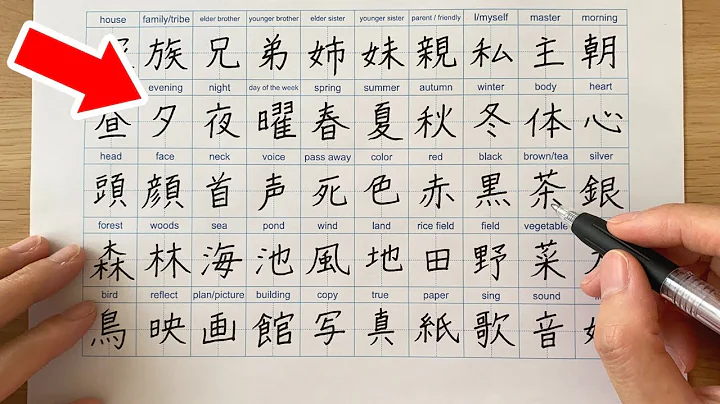 house family/tribe elder brother younger brother elder sister younger sister parent / friendly I/myself master morning
族 兄 弟 姉 妹 親 私 主 朝
evening night day of the week spring summer autumn winter body heart
昼 夕 夜 曜 春 夏 秋 冬 体 心
head face neck voice pass away color red black brown/tea silver
頭 顔 首 声 死 色 赤 黒 茶 銀
forest woods sea pond wind land rice field field vegetable
森 林 海 池 風 地 田 野 菜
bird reflect plan/picture building copy true paper sing sound
鳥 映 画 館 写 真 紙 歌 音